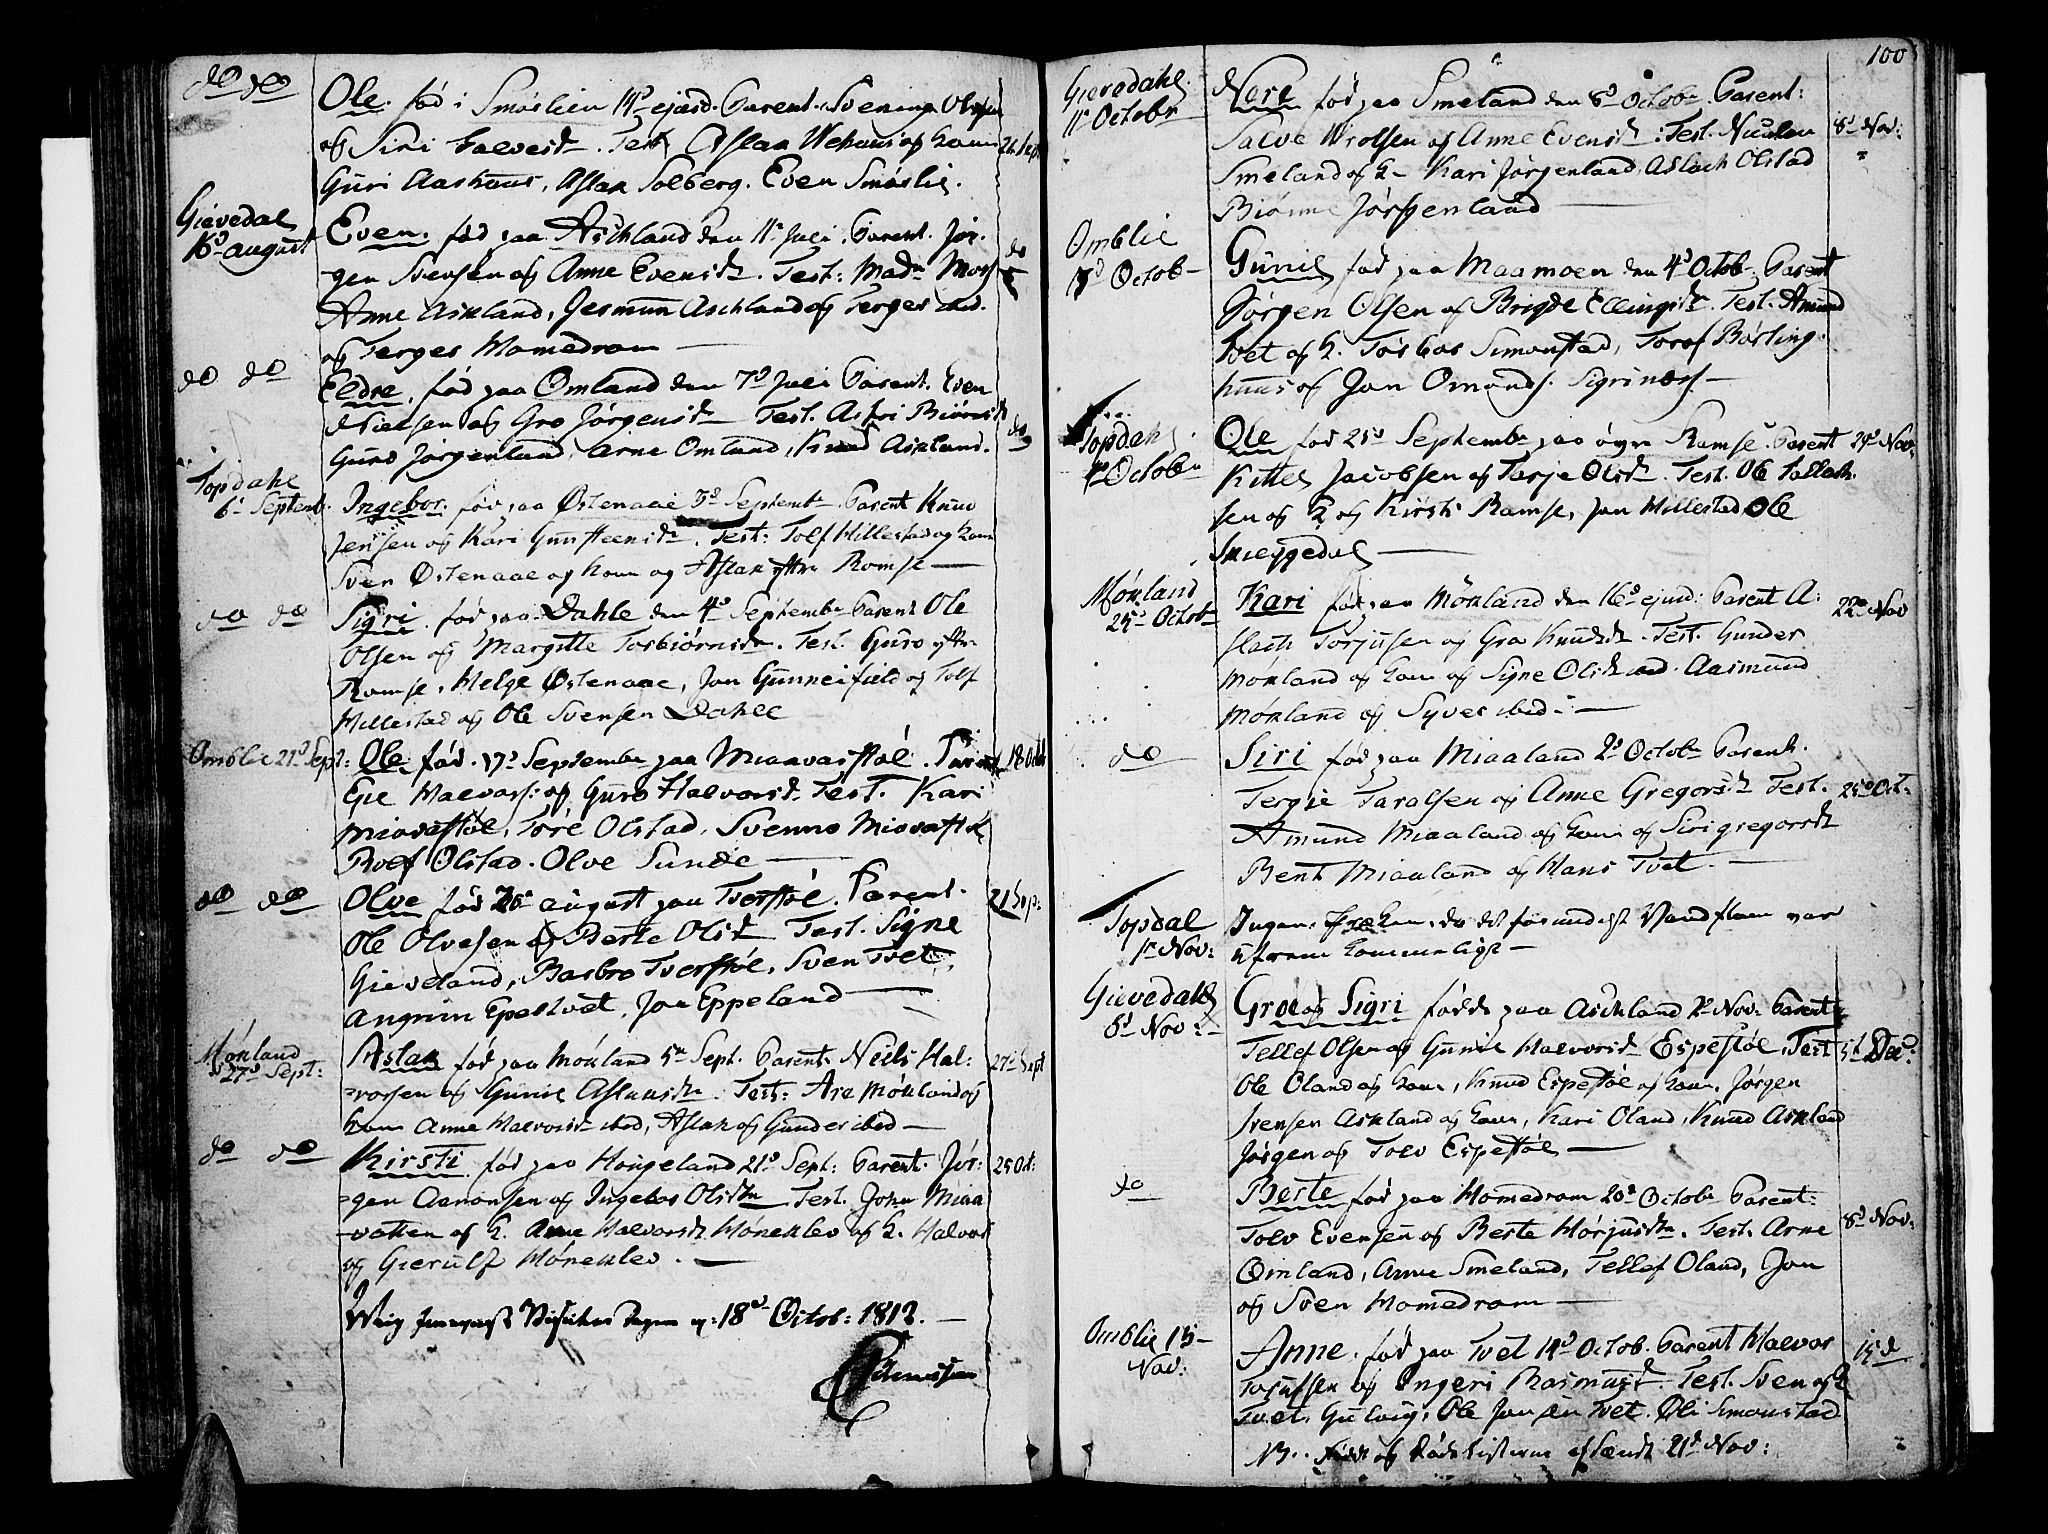 do do
Ole. fød i Smøslien 14d ejusd. Parent. Svening Olsen
og Siri Halvorsd. Test. Aslak Wehuus og Kone 26 Sept
Guri Aashuus, Aslak Solberg. Even Smøslie.
Gievedal
16d august
Even. fød paa Aschland den 11te Juli. Parent. Jør-
gen Svensen og Anne Evensdr. Test: Madm Moss do
Anne Askland, Jesmun Aschland og Terges ibid.
og Terges Homedrom —
do do
Eldre, fød paa Omland den 7d Juli Parent. Even
Nielsen og Gro Jørgensdr — Test. Astri Biørnsd
Guro Jørgenland, Arne Omland, Knud Askland. do
Topdahl
6te Septemb.
Ingebor. fød paa Østenaae 3d Septemb. Parent Knud
Jensen og Kari Gunsteensdr. Test: Tolf Hillestad og kone
Sven Østenaae og kone og Aslak yttr Ramse —
do do
Sigri fød paa Dahle den 4d Septembr Parent Ole
Olsen og Margitte Torbiørnsdr. Test. Guro yttr
Ramse, Helge Østenaae, Jon Gunneifield og Tolf
Hillestad og Ole Svensen Dahle
Omblie 21d Sept:
Ole fød. 17d Septembr paa Miaavasstøl. Parent 18 Octob
Gie Halvorss: og Guro Halvorsdr. Test. Kari
Miavasstøl, Tore Olstad, Svenno Miavasstøl
Rolf Olstad. Olve Sunde —
do do
Olve fød 20de august paa Tverstøl. Parent. 21 Sep:
Ole Olvesen og Berte Olsd Test. Signe
Gieveland, Barbro Tverstøl, Sven Tvet,
Angrim Epestvet, Jon Eppeland —
Møkland
27d Sept:
Aslak fød paa Møkland 5te Sept. Parent. Neils Hal- 27d Sept
vorsen og Gunil Aslaksdr. Test: Are Møkland og
kone Anne Halvorsd ibid, Aslak og Gunder ibid —
do do
Kirsti. fød paa Hougeland 21d Sept: Parent. Jør- 25 Oct:
gen Aanonsen og Ingebor Olsdtr — Test. John Miaa-
vatten og K. Anne Halvorsd Møneklev og K. Halvor
og Gierulf Møneklev. —
18d Octob: 1812. —
100
Gievedahl
11te Octobr
Nere fød paa Smeland den 8d Octob Parent:
Salve Wrolsen og Anne Evensd: Test. Nicolau 8d Nov:
Smeland og K — Kari Jørgenland, Aslach Olstad
Biønne Jørgenland —
Omblie
Octob —
Gunil fød paa Maamoen den 4d Octob. Parent
Jørgen Olsen og Brigde Ellingsd. Test. Amund
Tvet og K. Torbor Simonstad, Torof Børling-
huus og Jon Omonds. Sigrinæss —
Topdahl
Octob
Ole fød 25d Septembr paa øvre Ramse Parent 29d Nov:
Kittel Jacobsen og Tarje Olsd. Test. Ole Tallach-
sen og K og Kirsti Ramse, Jon Hillestad Ole
Skieggedal —
Møkland
25d Octob
Kari fød paa Møkland den 16d ejusd: Parent A- 22d Nov
slach Torjusen og Gro Knudsd. Test. Gunder
Møkland og kone og Signe Olsd ibid. Aasmund
Møkland og Syver ibid: —
do
Siri fød paa Miaaland 2d Octob Parent.
Tergie Taralsen og Anne Gregorsd Test. 25d Oct:
Amund Miaaland og kone og Siri gregorsd
Bent Miaaland og Hans Tvet. —
Topdal
1te Nov:
Ingen Præken, da det formedelst Vandflom var
ufremkommeligt —
Gievedahl
8d Nov:
Gro og Sigri fødde paa Aschland 2d Nov: Parent
Tellef Olsen og Gunil Halvorsd Espestøl. Test Dec:
Ole Oland og kone, Knud Espestøl og kone, Jørgen
Svensen Askland og kone, Kari Oland, Knud Askland
Jørgen og Tolv Espestøl —
do
Berte fød paa Homedrom 20d Octob Parent:
Tolv Evensen og Berte Horjusdr. Test. Arne 8d Nov:
Omland, Anne Smeland, Tellef Oland, Jon
og Sven Homedrom —
Omblie 15
Nov:
Anne. fød paa Tvet 14d Octob. Parent Halvor 15d
Tojufsen og Ingeri Rasmusd. Test. Sven og K
Tvet, Gulvig, Ole Jonsen Tvet. Oli Simonstad
NB. Fødde og Døds Listerne afsendt 21d Nov: